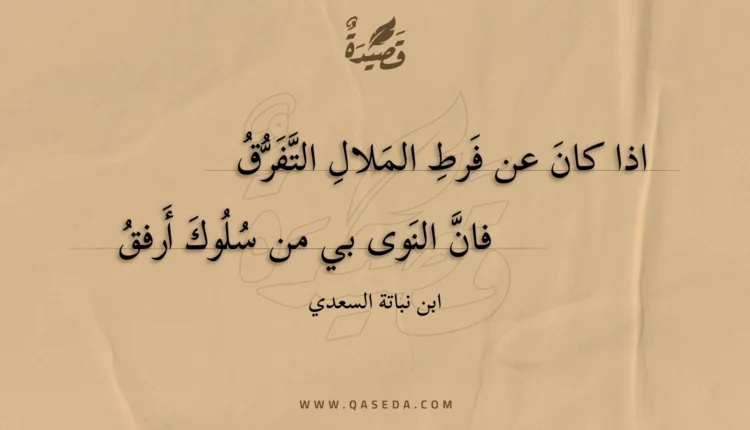 قَصِيدَةٌ
اذا كانَ عن فَرطِ المَلالِ التَّفَرُّقُ
فانَّ النَوى بي من سُلُوكَ أَرفقُ
ابن نباتة السعدي
WWW.QASEDA.COM